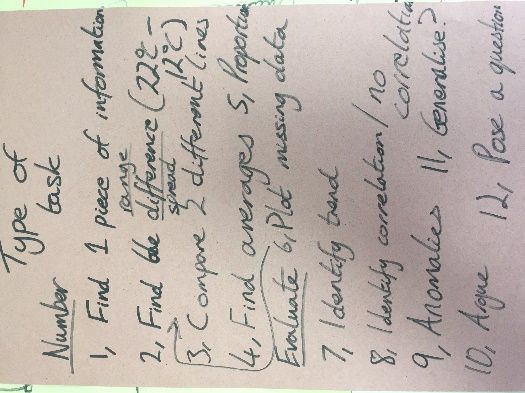 Type of
Number task
1, Find 1 piece of information
range
2, Find the difference (22°c -
spread 12°c)
3, Compare 2 different lines
4, Find averages 5, Proportion
Evaluate 6, Plot missing data
7, Identify trend
8, Identify correlation / no
correlation
9, Anomalies 11, Generalise?
10, Argue 12, Pose a question